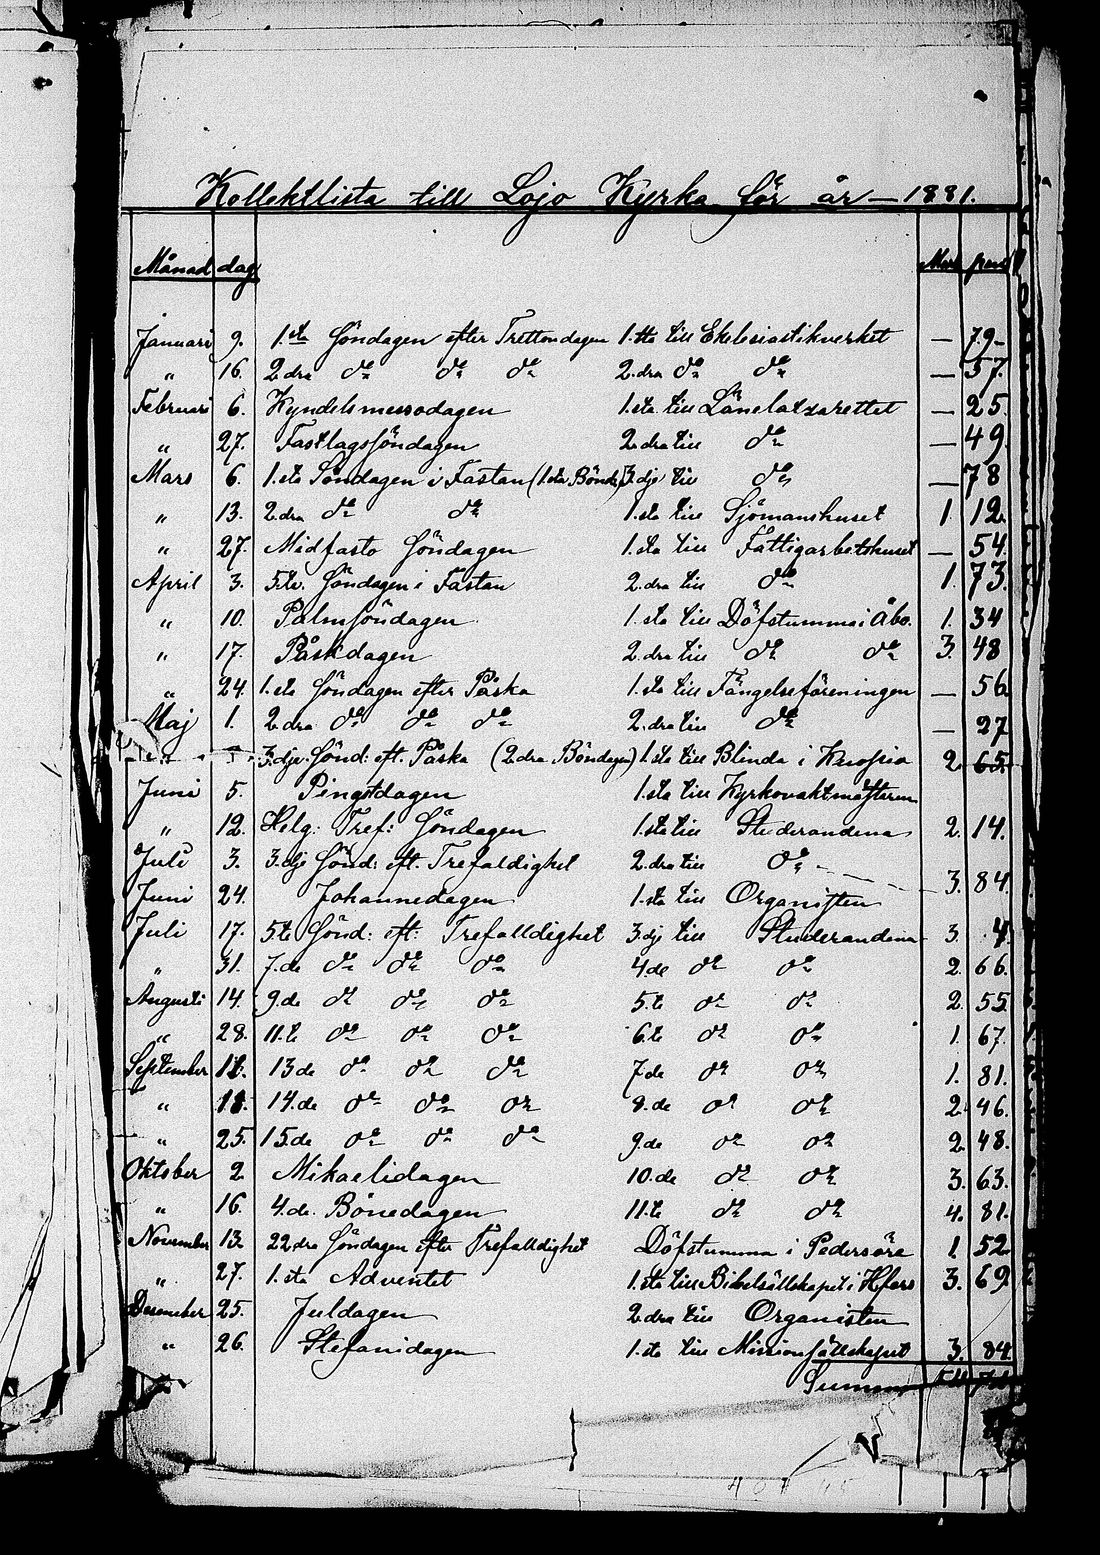 Kollektlista till Lojo Kyrka för år — 1881.
Månad dag Mark penni
Januari 9. 1.sta Söndagen efter Trettondagen 1.sta till Eklesiastikverket — 79 –
„ 16. 2.dra do do do 2.dra do do — 57.
Februari 6. Kyndelsmessodagen 1.sta till Länelatzarettet — 25.
„ 27. Fastlagssöndagen 2.dra till do — 49.
Mars 6. 1.sta Söndagen i Fastan (1.sta Bönd.) 3.dje till do — 78
„ 13. 2.dra do do 1.sta till Sjömanshuset 1. 12.
„ 27. Midfasto Söndagen 1.sta till Fattigarbetshuset — 54.
April 3. 5.te Söndagen i Fastan 2.dra till do 1. 73.
„ 10. Palmsöndagen 1.sta till Döfstumma i Åbo. 1. 34
„ 17. Påskdagen 2.dra till do do 3. 48
„ 24. 1.sta Söndagen efter Påska 1.sta till Fängelseföreningen — 56.
Maj 1. 2.dra do do do 2.dra till do — 27
„ 3.dje Sönd: eft. Påska (2.dra Böndagen) 1.sta till Blinda i Kuopio 2. 65.
Juni 5. Pingstdagen 1.sta till Kyrkovaktmästaren
„ 12. Helg: Tref: Söndagen 1.sta till Studerandena 2. 14.
Juli 3. 3.dje Sönd: eft. Trefaldighet 2.dra till do – 3. 84.
Juni 24. Johannedagen 1.sta till Organisten
Juli 17. 5.te Sönd: eft: Trefalldighet 3.dje till Studerandena 3. 4.
„ 31. 7.de do do do 4.de do do 2. 66.
Augusti 14. 9.de do do do 5.te do do 2. 55.
„ 28. 11.te do do do 6.te do do 1. 67.
September 13.de do do do 7.de do do 1. 81.
„ 14.de do do do 8.de do do 2. 46.
„ 25. 15.de do do do 9.de do do 2. 48.
Oktober 2. Mikaelidagen 10.de do do 3. 63.
„ 16. 4.de Bönedagen 11.te do do 4. 81.
November 13. 22.dra Söndagen efter Trefalldighet Döfstumma i Pedersöre 1. 52.
„ 27. 1.sta Adventet 1.sta till Bibelsällskapet i Hfors 3. 69.
Desember 25. Juldagen 2.dra till Organisten
„ 26. Stefanidagen 1.sta till Missionssällskapet 3. 84.
Summa